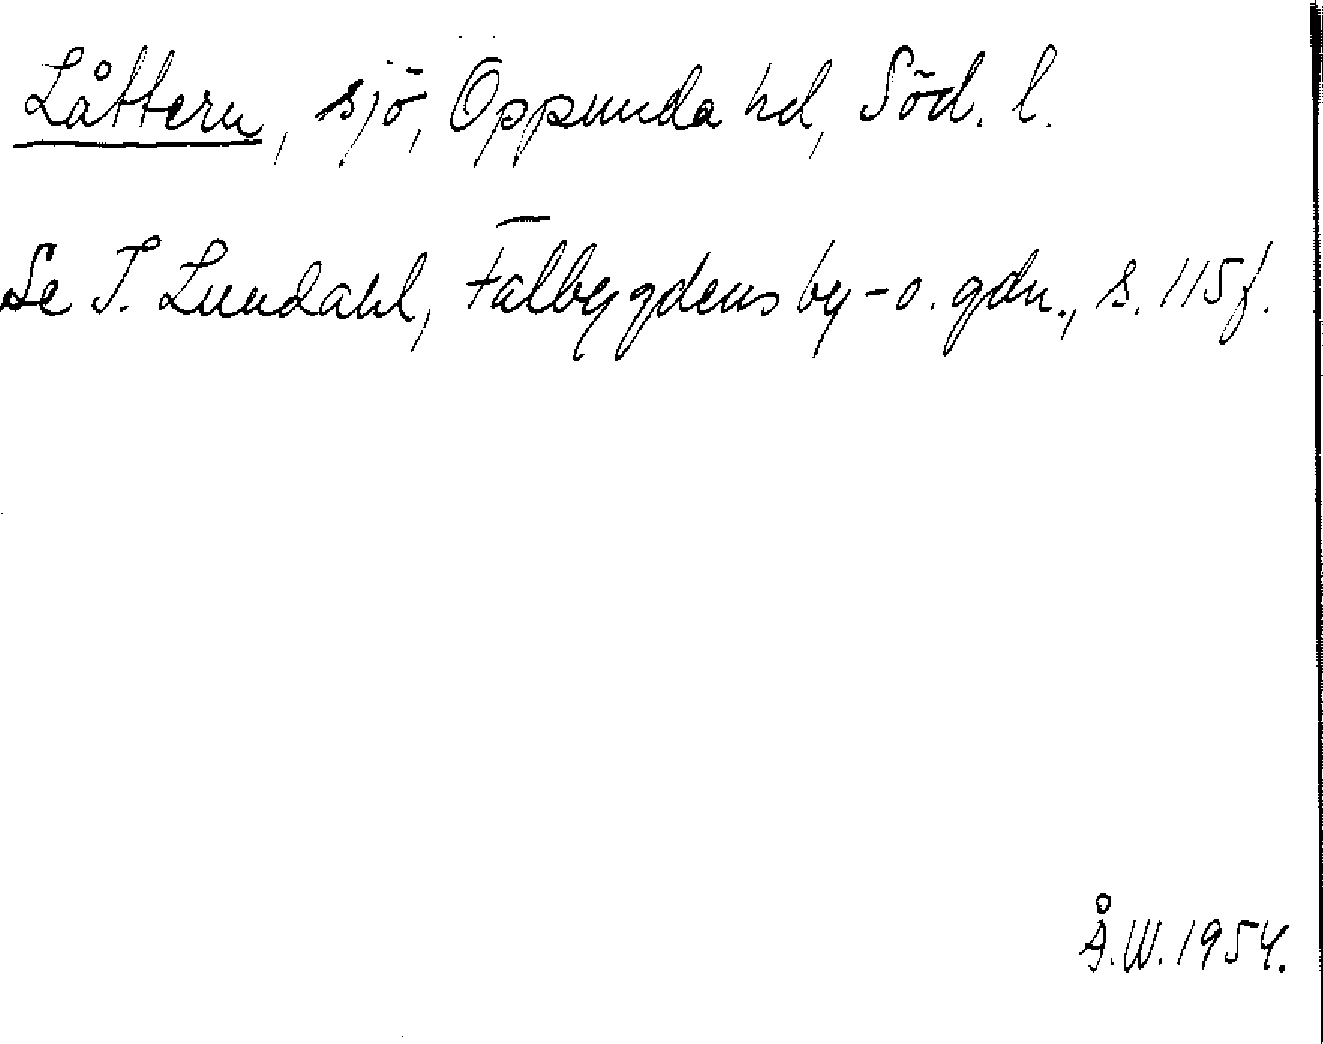 Låttern, sjö, Oppunda hd, Söd. l.
Se I. Lundahl, Falbygdens by- o. gdn., s. 115 f.
Å.W. 1954.